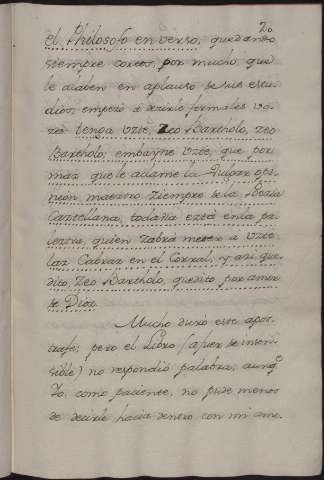 20
el Philosofo en verso, quedando
siempre cortos, por mucho que
le alaben en aplauso de sus estu-
dios, empezó a decirle formales vo-
zes tenga Uzte, Zeo Bartholo, Zeo
Bartholo; embayne Uzee, que por
maz que le aclame la Vulgar opi-
nion, maestro ziempre de la Poezia
Caztellana, todabia eztà en la pa-
lestra, quien zabrà meter a Uzte
laz Cabraz en el Corral, y azi que-
dito, Zeo Bartholo, quedito por amor
de Dioz.
Mucho durò este apos-
trafe; pero el Libro (a fuer de insen-
sible) no respondiò palabra; aunq.e
Yo, como paciente, no pude menos
de decirle hacia dentro con mi ame-